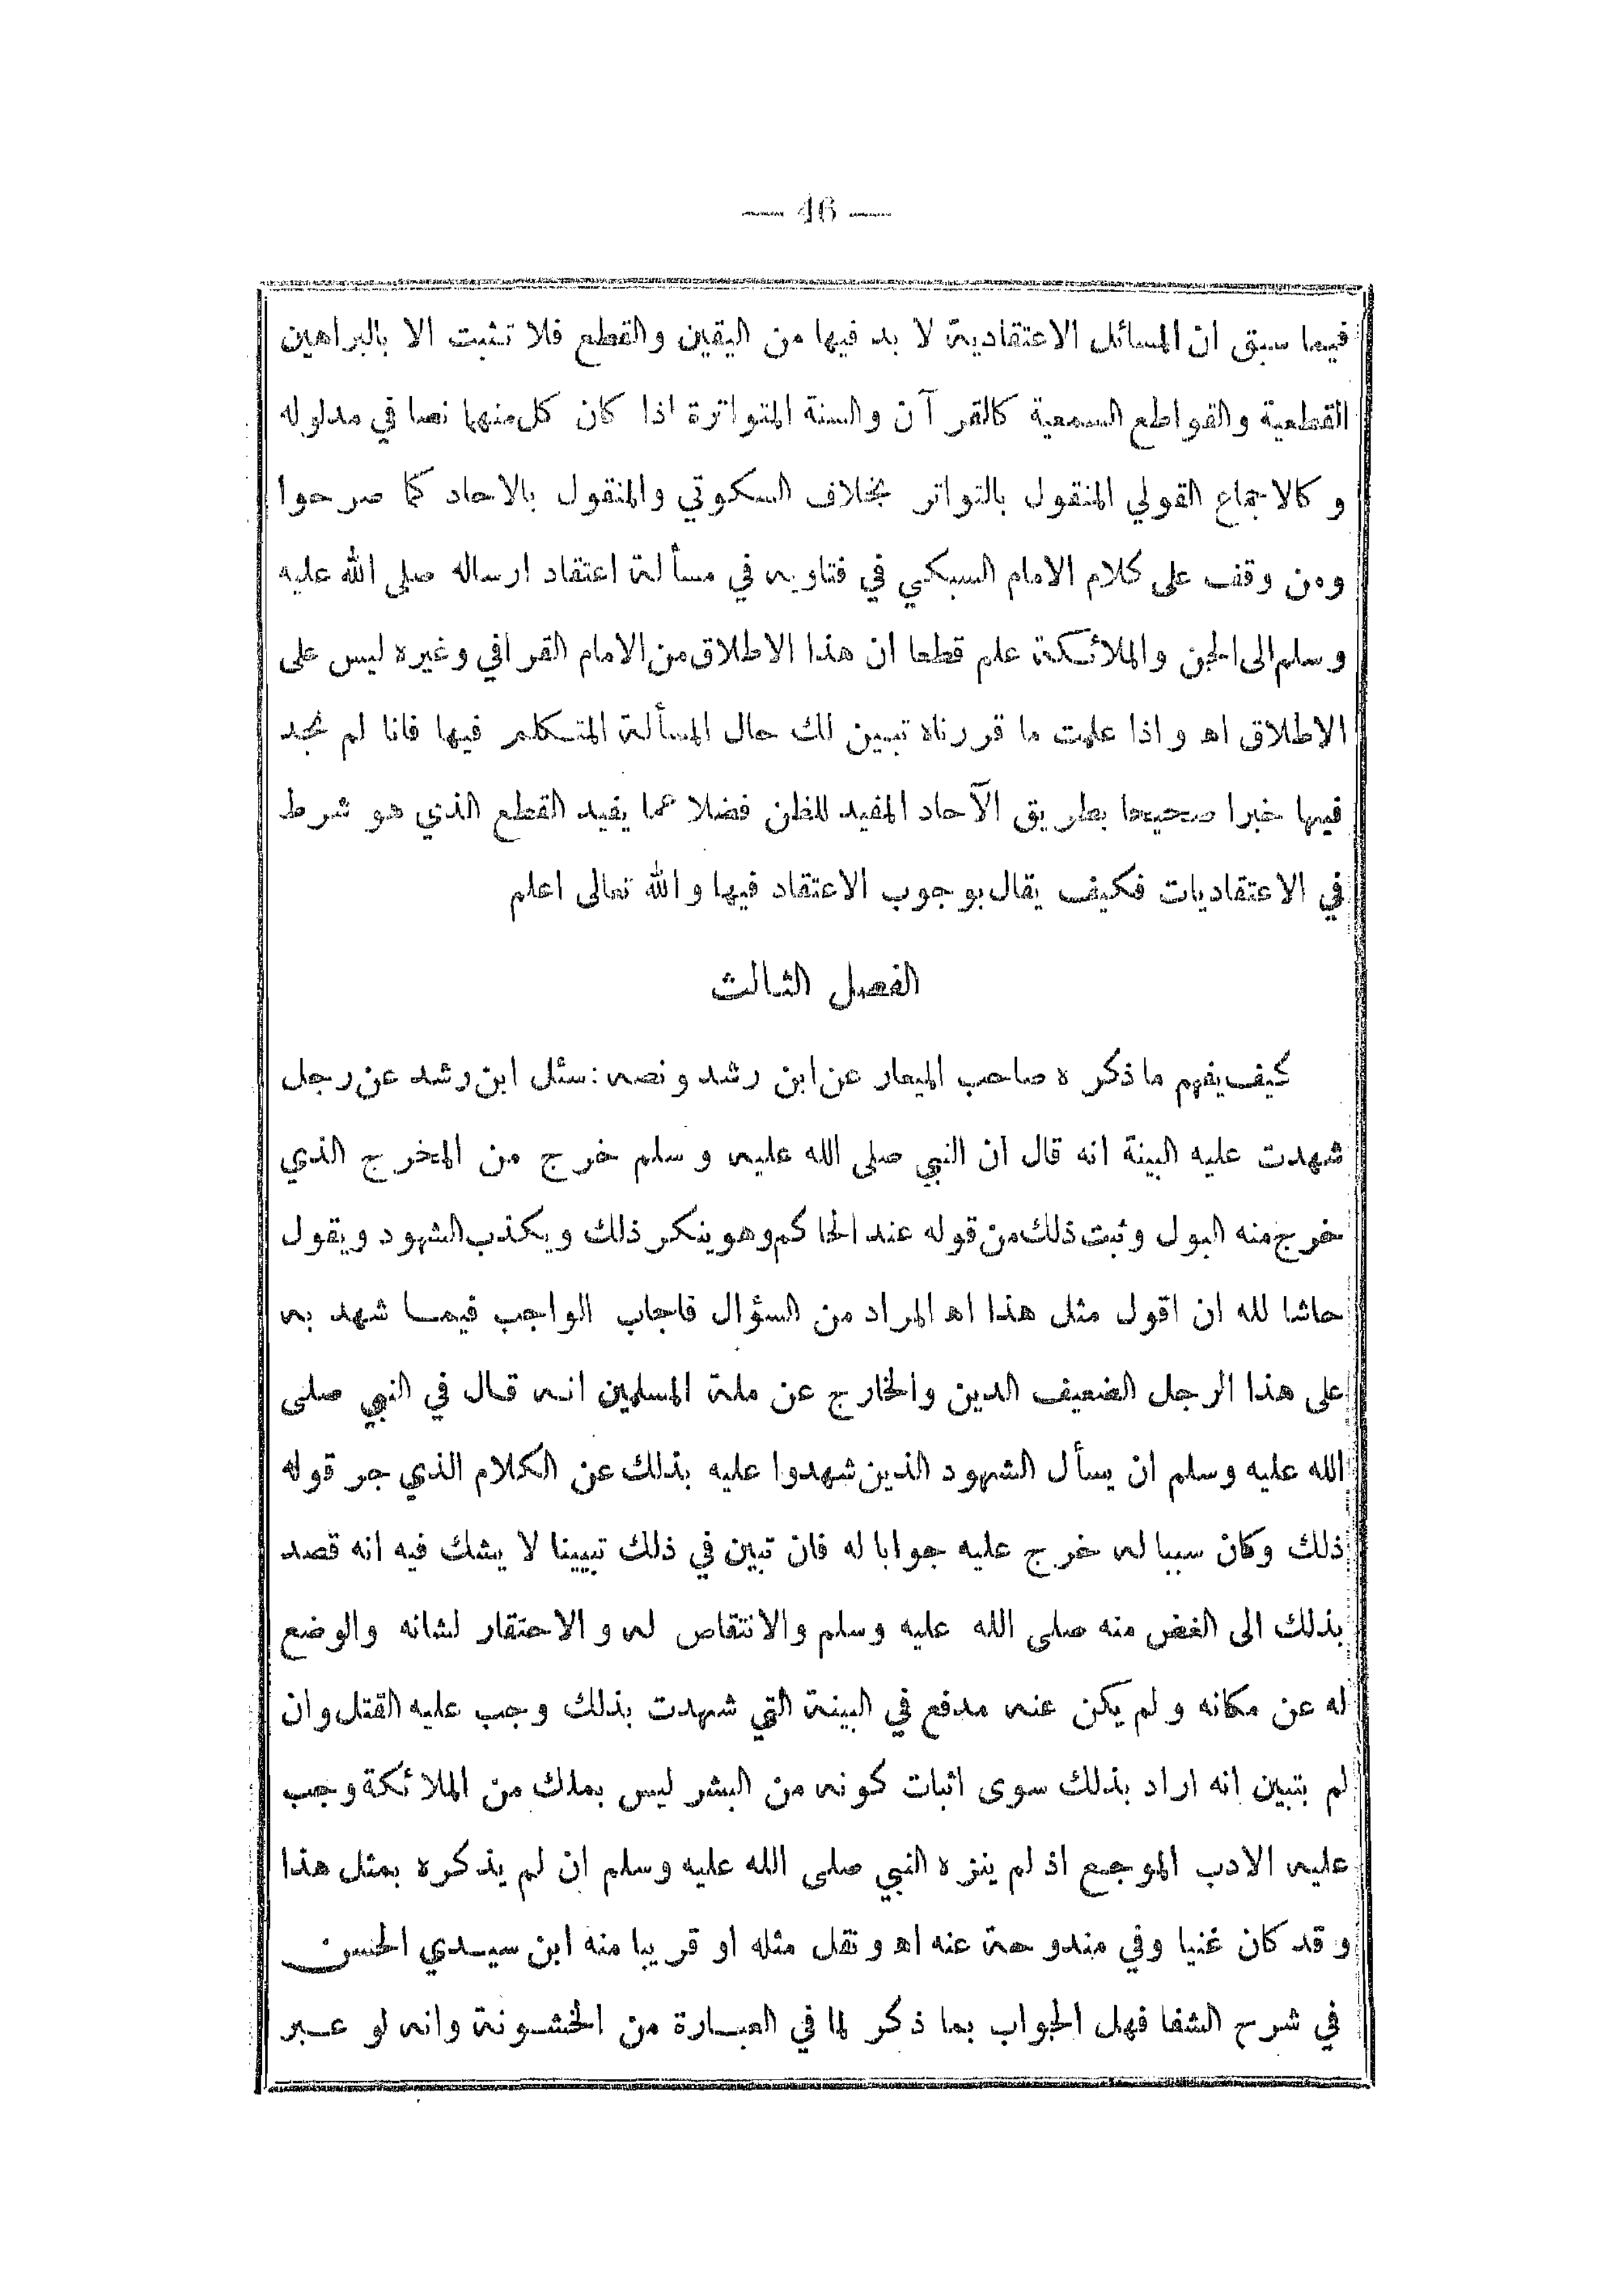 — 46 —
فيما سبق ان المسائل الاعتقادية لا بد فيها من اليقين والقطع فلا تثبت الا بالبراهين
القطعية والقواطع السمعية كالقرآن والسنة المتواترة اذا كان كل منهما نصا في مدلوله
وكالاجماع القولي المنقول بالتواتر بخلاف السكوتي والمنقول بالاحاد كما صرحوا
ومن وقف على كلام الامام السبكي في فتاويه في مسألة اعتقاد ارساله صلى الله عليه
وسلم الى الجن والملائكة علم قطعا ان هذا الاطلاق من الامام القرافي وغيره ليس على
الاطلاق اه واذا علمت ما قررناه تبين لك حال المسألة المتكلم فيها فانا لم نجد
فيها خبرا صحيحا بطريق الآحاد المفيد للظن فضلا عما يفيد القطع الذي هو شرط
في الاعتقاديات فكيف يقال بوجوب الاعتقاد فيها والله تعالى اعلم
الفصل الثالث
كيف يفهم ما ذكره صاحب المعيار عن ابن رشد ونصه: سئل ابن رشد عن رجل
شهدت عليه البينة انه قال ان النبي صلى الله عليه وسلم خرج من المخرج الذي
خرج منه البول وثبت ذلك من قوله عند الحاكم وهو ينكر ذلك ويكذب الشهود ويقول
حاشا لله ان اقول مثل هذا اه المراد من السؤال فاجاب الواجب فيما شهد به
على هذا الرجل الضعيف الدين والخارج عن ملة المسلمين انه قال في النبي صلى
الله عليه وسلم ان يسأل الشهود الذين شهدوا عليه بذلك عن الكلام الذي جر قوله
ذلك وكان سببا له خرج عليه جوابا له فان تبين في ذلك تبيينا لا يشك فيه انه قصد
بذلك الى الغض منه صلى الله عليه وسلم والانتقاص له والاحتقار لشانه والوضع
له عن مكانه ولم يكن عنه مدفع في البينة التي شهدت بذلك وجب عليه القتل وان
لم يتبين انه اراد بذلك سوى اثبات كونه من البشر ليس بملك من الملائكة وجب
عليه الادب الموجع اذ لم ينزه النبي صلى الله عليه وسلم ان لم يذكره بمثل هذا
وقد كان غنيا وفي مندوحة عنه اه ونقل مثله او قريبا منه ابن سيدي الحسن
في شرح الشفا فهل الجواب بما ذكر لما في العبارة من الخشونة وانه لو عبر